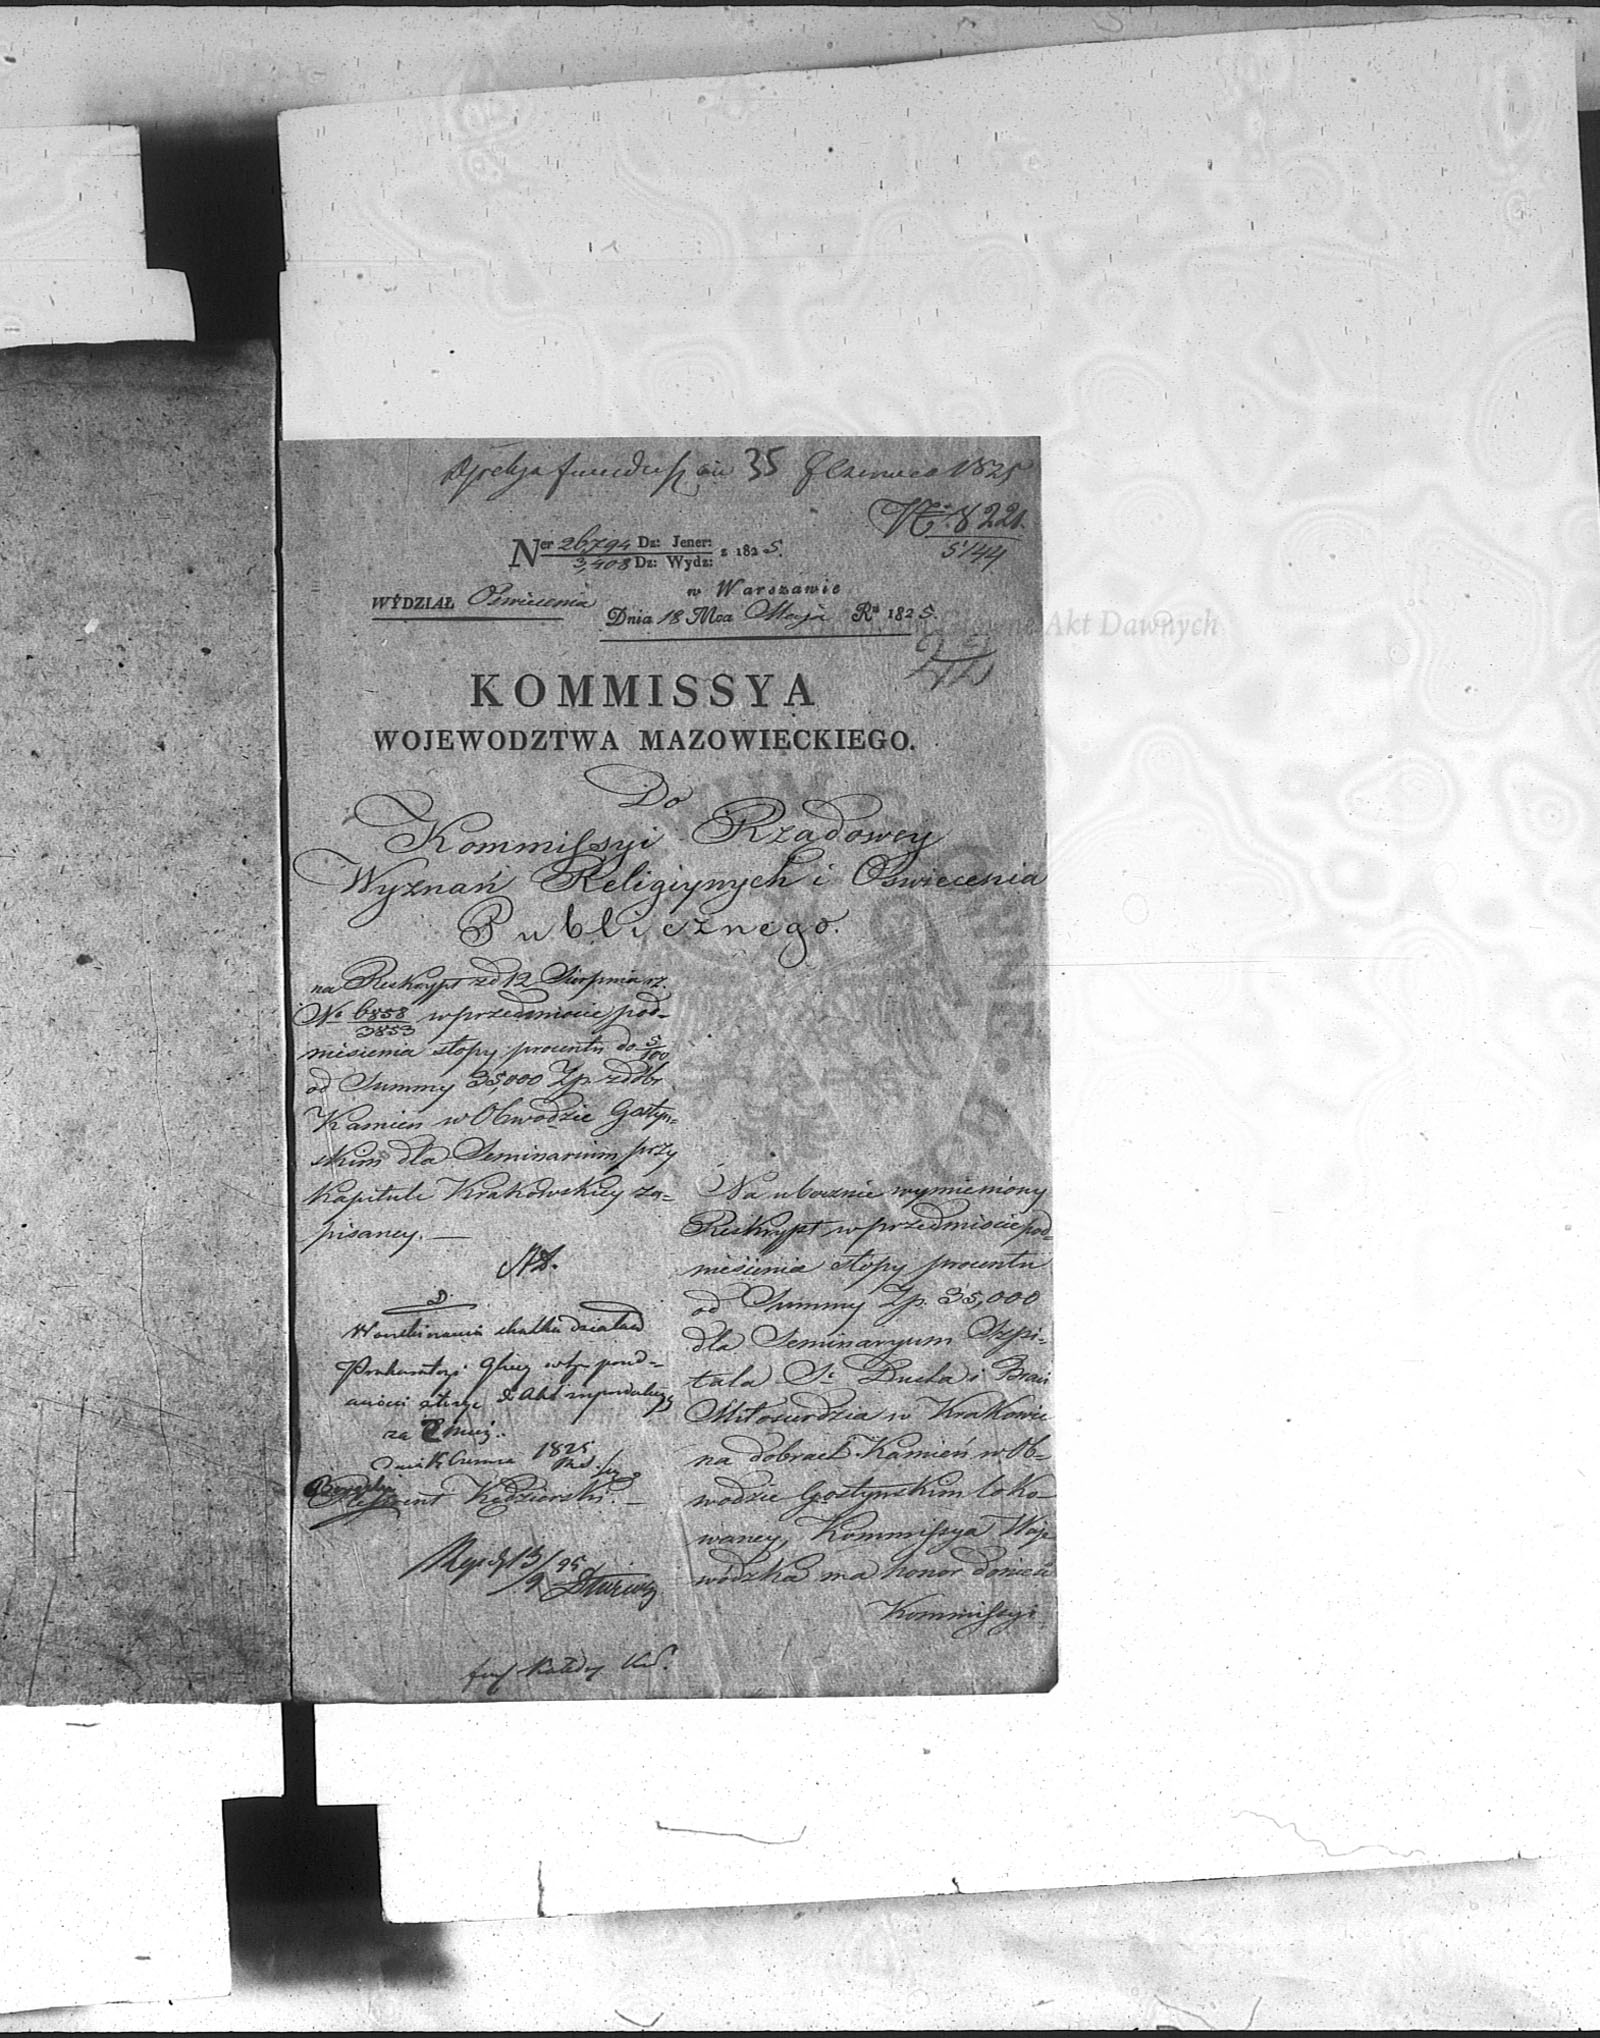 35 Czerwca 1825
No. 8221.
5144
Ner 26,794 Dz: Jener: z 1825.
3,408 Dz: Wydz:
w Warszawie
WYDZIAŁ Oswiecenia
Dnia 18 Mca Maja Rku 1825.
Główne Akt Dawnych
KOMMISSYA
WOJEWODZTWA MAZOWIECKIEGO.
Do
Kommissyi Rządowey
Wyznań Religiynych i Oswiecenia
Publicznego.
na Reskrypt zd 12 Sierpnia rz.
No 6858 w przedmiocie pod-
3853
niesienia stopy procentu do 5/100
od Summy 35,000 Zp. z dóbr
Kamien w Obwodzie Gostyn-
skim dla Seminarium przy
Kapitule Krakowskiey za-
pisaney. —
Na ubocznie wymieniony
Reskrypt w przedmiocie pod-
niesienia stopy procentu
od Summy Zp. 35,000
dla Seminaryum Szpi-
tala St. Ducha i Braci
Miłosierdzia w Krakowie
na dobrach Kamień w Ob-
wodzie Gostynskim loko-
waney, Kommissya Woje-
wódzka ma honor donieść
Kommissyi
skutku działań
Prokuratoryi
do Akt
1825
Referent Kędzierski. —